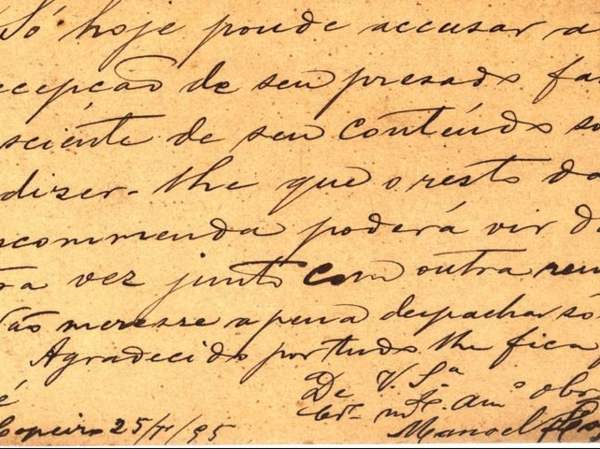 Só hoje poude accusar a
ecepção de seu presado fa
sciente de seu contéudo so
dizer-lhe que o resto da
scommenda poderá vir da
tra vez junto com outra rem
Não meresse a pena despachar só
Agradecido por tudo lhe fica
De V. Sª
é
Cr. mto amº obr
Copeiro 25/ /95
Manoel